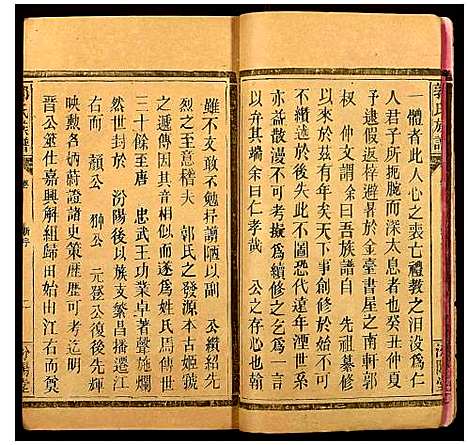 郭氏族譜
一體者此人心之喪亡禮教之汨没為仁
人君子所扼腕而深太息者也癸丑仲夏
予逮假返梓避暑於金臺書屋之南軒郭
权 仲文謂余曰吾族譜自 先祖纂修
以來於茲有年矣天下事創修於前
不續述於後此不圖恐代遠年湮世系
亦益散漫不可考擬為續修之乞為一言
以弁其端余曰仁孝哉 公之存心也
汾陽堂
雖不文敢不勉抒謭陋以副 公纘紹先
烈之至意稽夫 郭氏之發源本號
之遞傳因其音相似而遂為姓氏周傳世
三十餘至唐 忠武王功業卓著聲施爛
然世封於 汾陽後以族支繁昌播遷江
右而 顏公 翀公 元登公復後先輝
映勲各炳蔚證諸史策歷歷可考迄明
晉公筮仕嘉興解組歸田始由江右而奠
郭氏族譜
汾陽堂